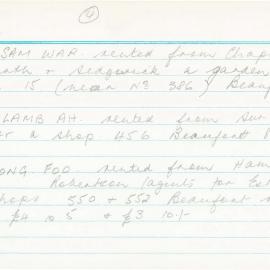 4
SAM WAR. rented from Chap
ath & Sedgwick a garden
15 (near No 386) Beauf
LAMB AH. rented from Sut
a shop 456 Beaufort
ONG. FOO. rented from Ham
Robertson (agents for Est
hops 550 + 552 Beaufort
£4 10 5 & £3 10/-